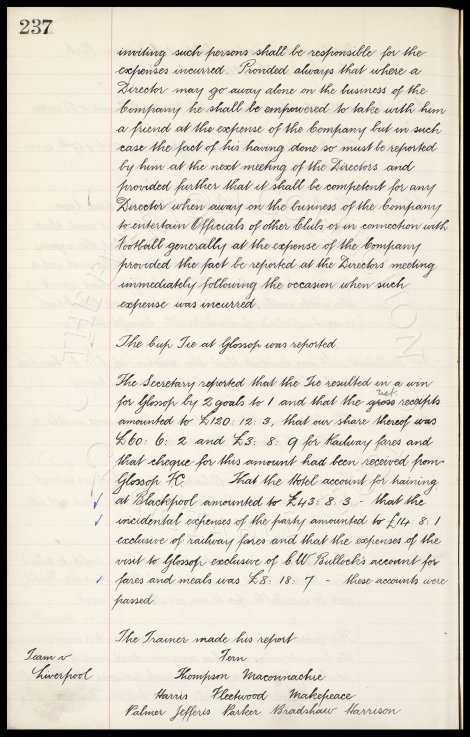 237
inviting such persons shall be responsible for the
expenses incurred. Provided always that where a
Director may go away alone on the business of the
Company he shall be empowered to take with him
a friend at the expense of the Company but in such
case the fact of his having done so must be reported
by him at the next meeting of the Directors and
provided further that it shall be competent for any
Director when away on the business of the Company
to entertain Officials of other Clubs or in connection with
Football generally at the expense of the Company
provided the fact be reported at the Directors meeting
immediately following the occasion when such
expense was incurred.
The Cup Tie at Glossop was reported.
The Secretary reported that the Tie resulted in a win
for Glossop by 2 goals to 1 and that the gross net receipts
amounted to £120: 12: 3, that our share thereof was
£60: 6: 2 and £3: 8: 9 for Railway fares and
that cheque for this amount had been received from
Glossop FC. That the Hotel account for training
at Blackpool amounted to £43: 8: 3 - that the
incidental expenses of the party amounted to £14: 8: 1
exclusive of railway fares and that the expenses of the
visit to Glossop exclusive of C.W. Bullock's account for
fares and meals was £8: 18: 7 - these accounts were
passed.
The Trainer made his report
Team v
Liverpool
Fern
Thompson Maconnachie
Harris Fleetwood Makepeace
Palmer Jefferis Parker Bradshaw Harrison